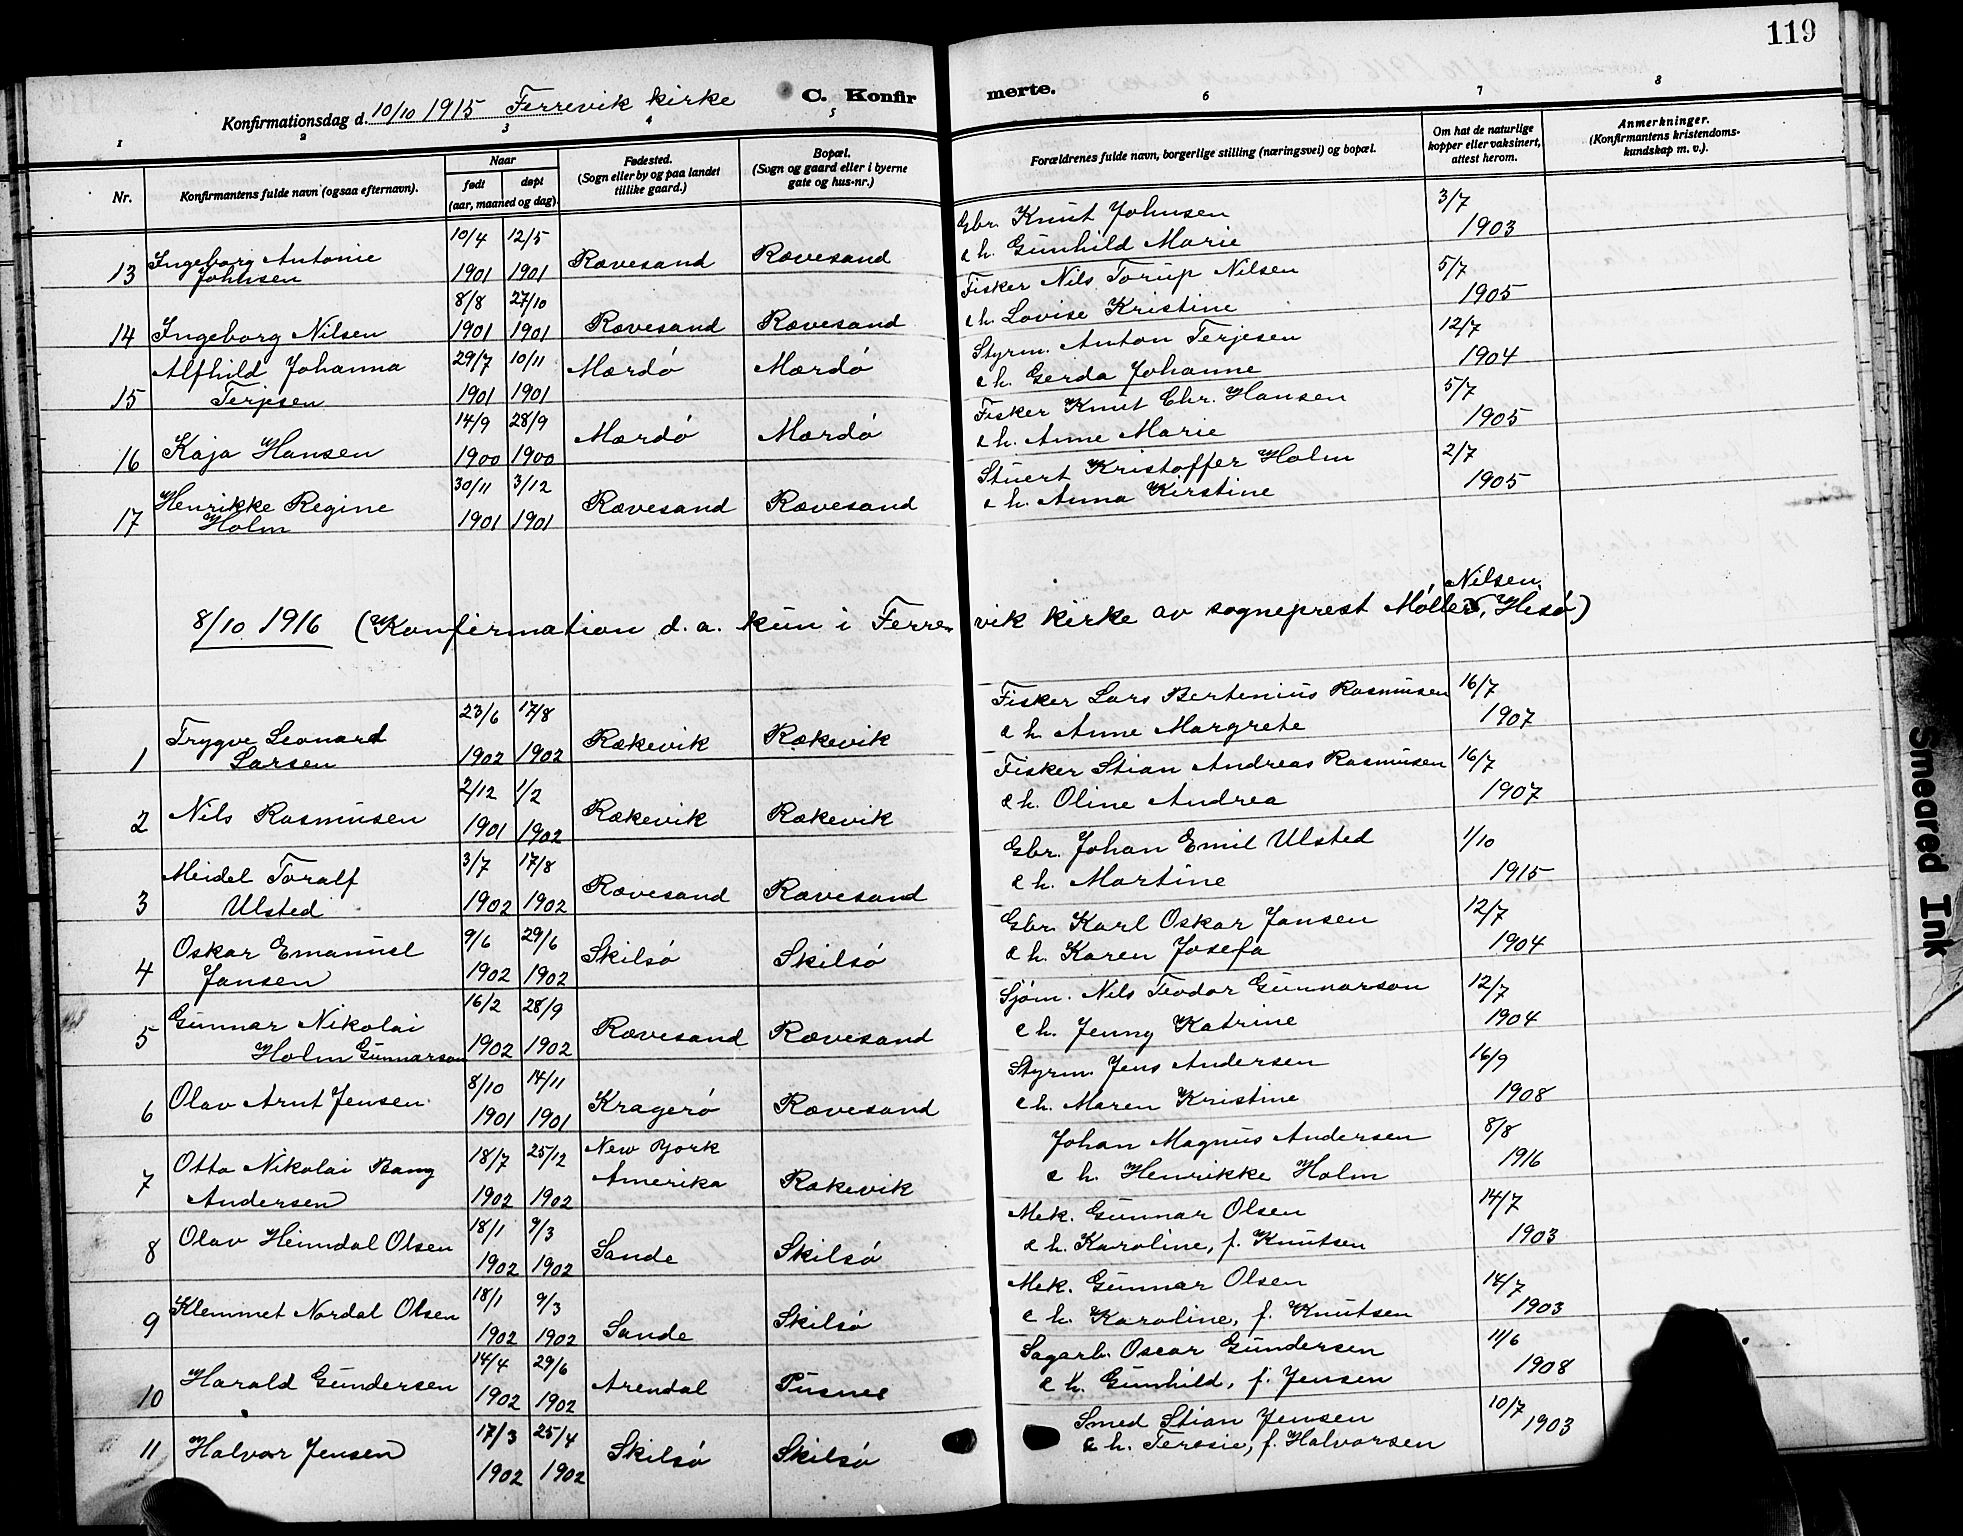 119
Konfirmationsdag d. 10/10 1915 Ferrevik kirke C. Konfirmerte.
1 2 3 4 5 6 7 8
Nr.
Konfirmantens fulde navn (ogsaa efternavn).
Naar
født døpt
(aar, maaned og dag).
Fødested.
(Sogn eller by og paa landet
tillike gaard.)
Bopæl.
(Sogn og gaard eller i byerne
gate og hus-nr.)
Forældrenes fulde navn, borgerlige stilling (næringsvei) og bopæl.
Om hat de naturlige
kopper eller vaksinert,
attest herom.
Anmerkninger.
(Konfirmantens kristendoms-
kundskap m. v.).
10/4 12/5 Gbr. Knut Johnsen 3/7
13 Ingeborg Antonie Johnsen 1901 1901 Rævesand Rævesand & h. Gunhild Marie 1903
8/8 27/10 Fisker Nils Torup Nilsen 5/7
14 Ingeborg Nilsen 1901 1901 Rævesand Rævesand & h. Lovise Kristine 1905
Alfhild Johanna 29/7 10/11 Mærdø Mærdø Styrm. Anton Terjesen 12/7
15 Terjesen 1901 1901 & h. Gerda Johanne 1904
14/9 28/9 Mærdø Mærdø Fisker Knut Chr. Hansen 5/7
16 Kaja Hansen 1900 1900 & h. Anne Marie 1905
Henrikke Regine 30/11 3/12 Rævesand Rævesand Stuert Kristoffer Holm 2/7
17 Holm 1901 1901 & h. Anna Kirstine 1905
Nilsen
8/10 1916 (Konfirmation d. a. kun i Ferrevik kirke av sogneprest Møller, Hisø)
23/6 17/8 Fisker Lars Bertenius Rasmusen 16/7
Trygve Leonard Rækevik Rækevik & h. Anne Margrete 1907
1 Larsen 1902 1902
2/12 1/2 Fisker Stian Andreas Rasmusen 16/7
2 Nils Rasmusen 1901 1902 Rækevik Rækevik & h. Oline Andrea 1907
Meidel Toralf 3/7 17/8 Gbr. Johan Emil Ulsted 1/10
3 Ulsted 1902 1902 Rævesand Rævesand & h. Martine 1915
Oskar Emanuel 9/6 29/6 Gbr. Karl Oskar Jansen 12/7
4 Jansen 1902 1902 Skilsø Skilsø & h. Karen Josefa 1904
Gunnar Nikolai 16/2 28/9 Sjøm. Nils Teodor Gunnarson 12/7
5 Holm Gunnarson 1902 1902 Rævesand Rævesand & h. Jenny Katrine 1904
8/10 14/11 Styrm. Jens Andersen 16/9
6 Olav Arnt Jensen 1901 1901 Kragerø Rævesand & h. Maren Kristine 1908
Otto Nikolai Bang 18/7 25/12 New York Johan Magnus Andersen 8/8
7 Andersen 1902 1902 Amerika Rakevik & h. Henrikke Holm 1916
18/1 9/3 Mek. Gunnar Olsen 14/7
8 Olav Heimdal Olsen 1902 1902 Sande Skilsø & h. Karoline, f. Knutsen 1903
18/1 9/3 Mek. Gunnar Olsen 14/7
9 Klemmet Nordal Olsen 1902 1902 Sande Skilsø & h. Karoline, f. Knutsen 1903
14/4 29/6 Sagarb. Oscar Gundersen 11/6
10 Harald Gundersen 1902 1902 Arendal Pusnes & h. Gunhild, f. Jensen 1908
17/3 25/4 Smed Stian Jensen 10/7
11 Halvor Jensen 1902 1902 Skilsø Skilsø & h. Teresie, f. Halvorsen 1903
Smeared Ink